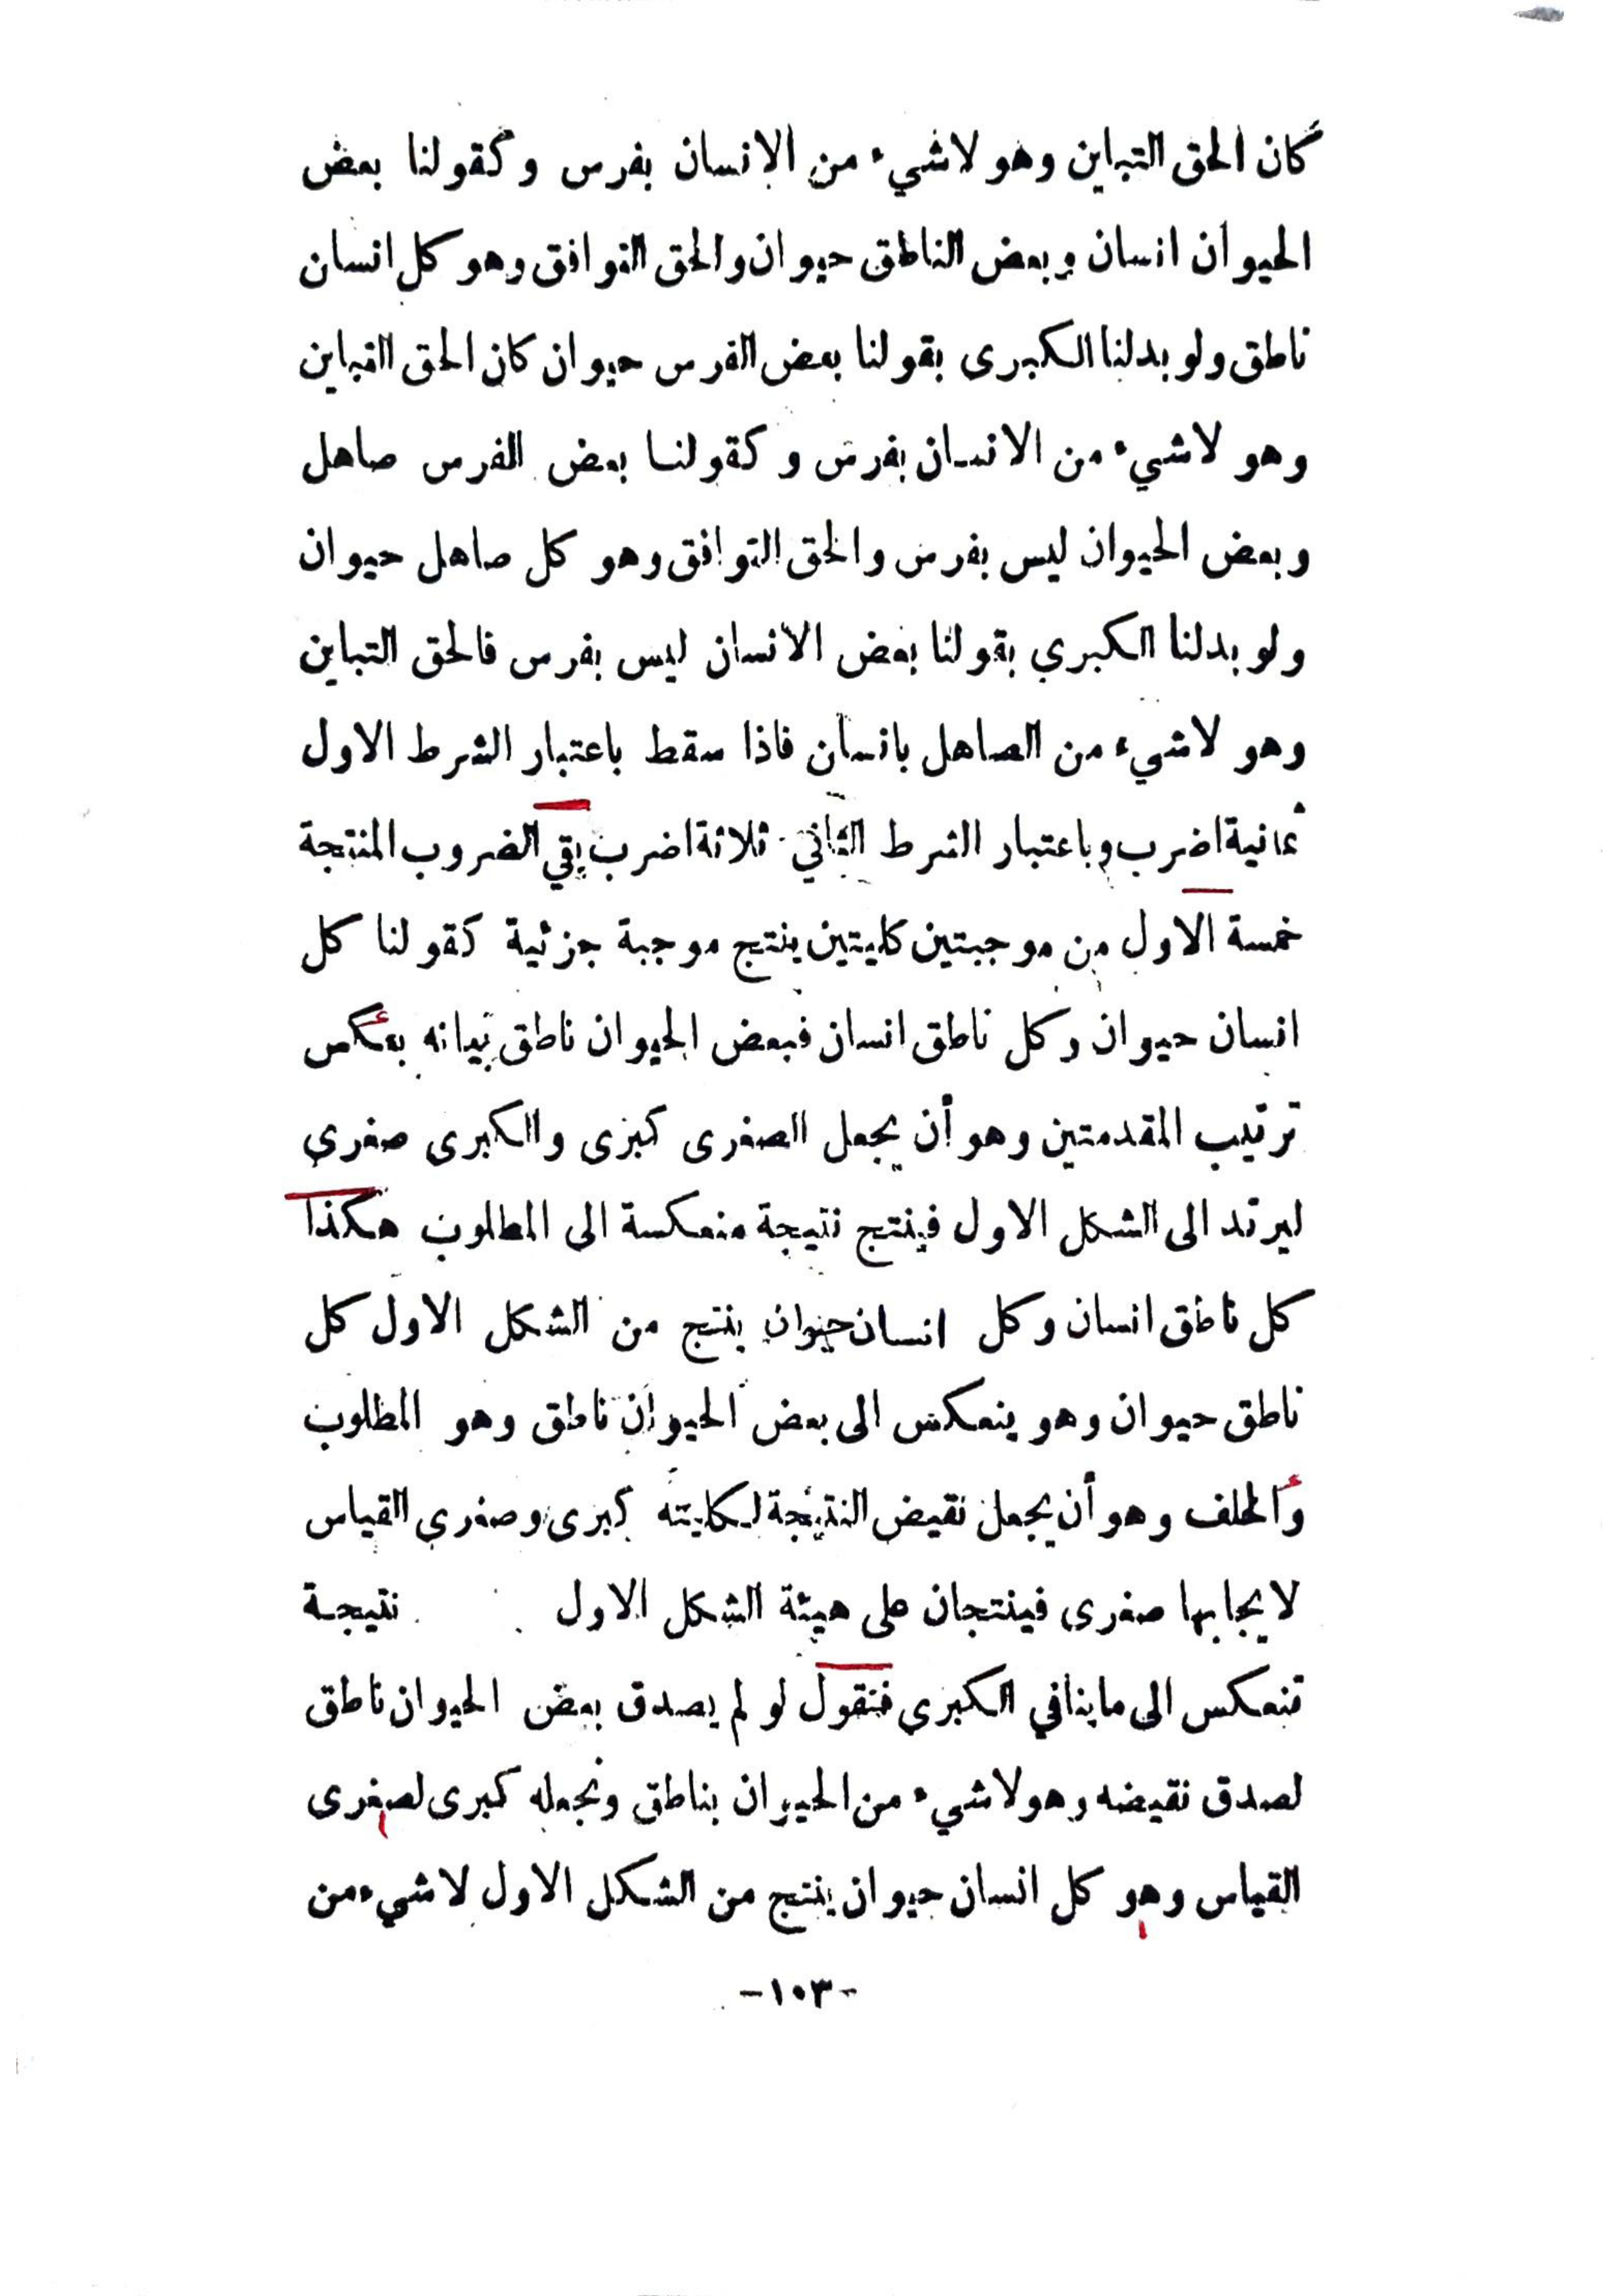 كان الحق التباين وهو لاشيء من الانسان بفرس وكقولنا بعض
الحيوان انسان وبعض الناطق حيوان والحق التوافق وهو كل انسان
ناطق ولو بدلنا الكبرى بقولنا بعض الفرس حيوان كان الحق التباين
وهو لاشيء من الانسان بفرس وكقولنا بعض الفرس صاهل
وبعض الحيوان ليس بفرس والحق التوافق وهو كل صاهل حيوان
ولو بدلنا الكبرى بقولنا بعض الانسان ليس بفرس فالحق التباين
وهو لاشيء من الصاهل بانسان فاذا سقط باعتبار الشرط الاول
ثمانية اضرب وباعتبار الشرط الثاني ثلاثة اضرب بقي الضروب المنتجة
خمسة الاول من موجبتين كليتين ينتج موجبة جزئية كقولنا كل
انسان حيوان وكل ناطق انسان فبعض الحيوان ناطق بيانه بعكس
ترتيب المقدمتين وهو أن يجعل الصغرى كبرى والكبرى صغرى
ليرتد الى الشكل الاول فينتج نتيجة منعكسة الى المطلوب هكذا
كل ناطق انسان وكل انسان حيوان ينتج من الشكل الاول كل
ناطق حيوان وهو ينعكس الى بعض الحيوان ناطق وهو المطلوب
والخلف وهو أن يجعل نقيض النتيجة لكليته كبرى وصغرى القياس
لايجابها صغرى فينتجان على هيئة الشكل الاول نتيجة
تنعكس الى ماينافي الكبرى فنقول لو لم يصدق بعض الحيوان ناطق
لصدق نقيضه وهو لاشيء من الحيوان بناطق ونجعله كبرى لصغرى
القياس وهو كل انسان حيوان ينتج من الشكل الاول لاشيء من
-١٠٣-